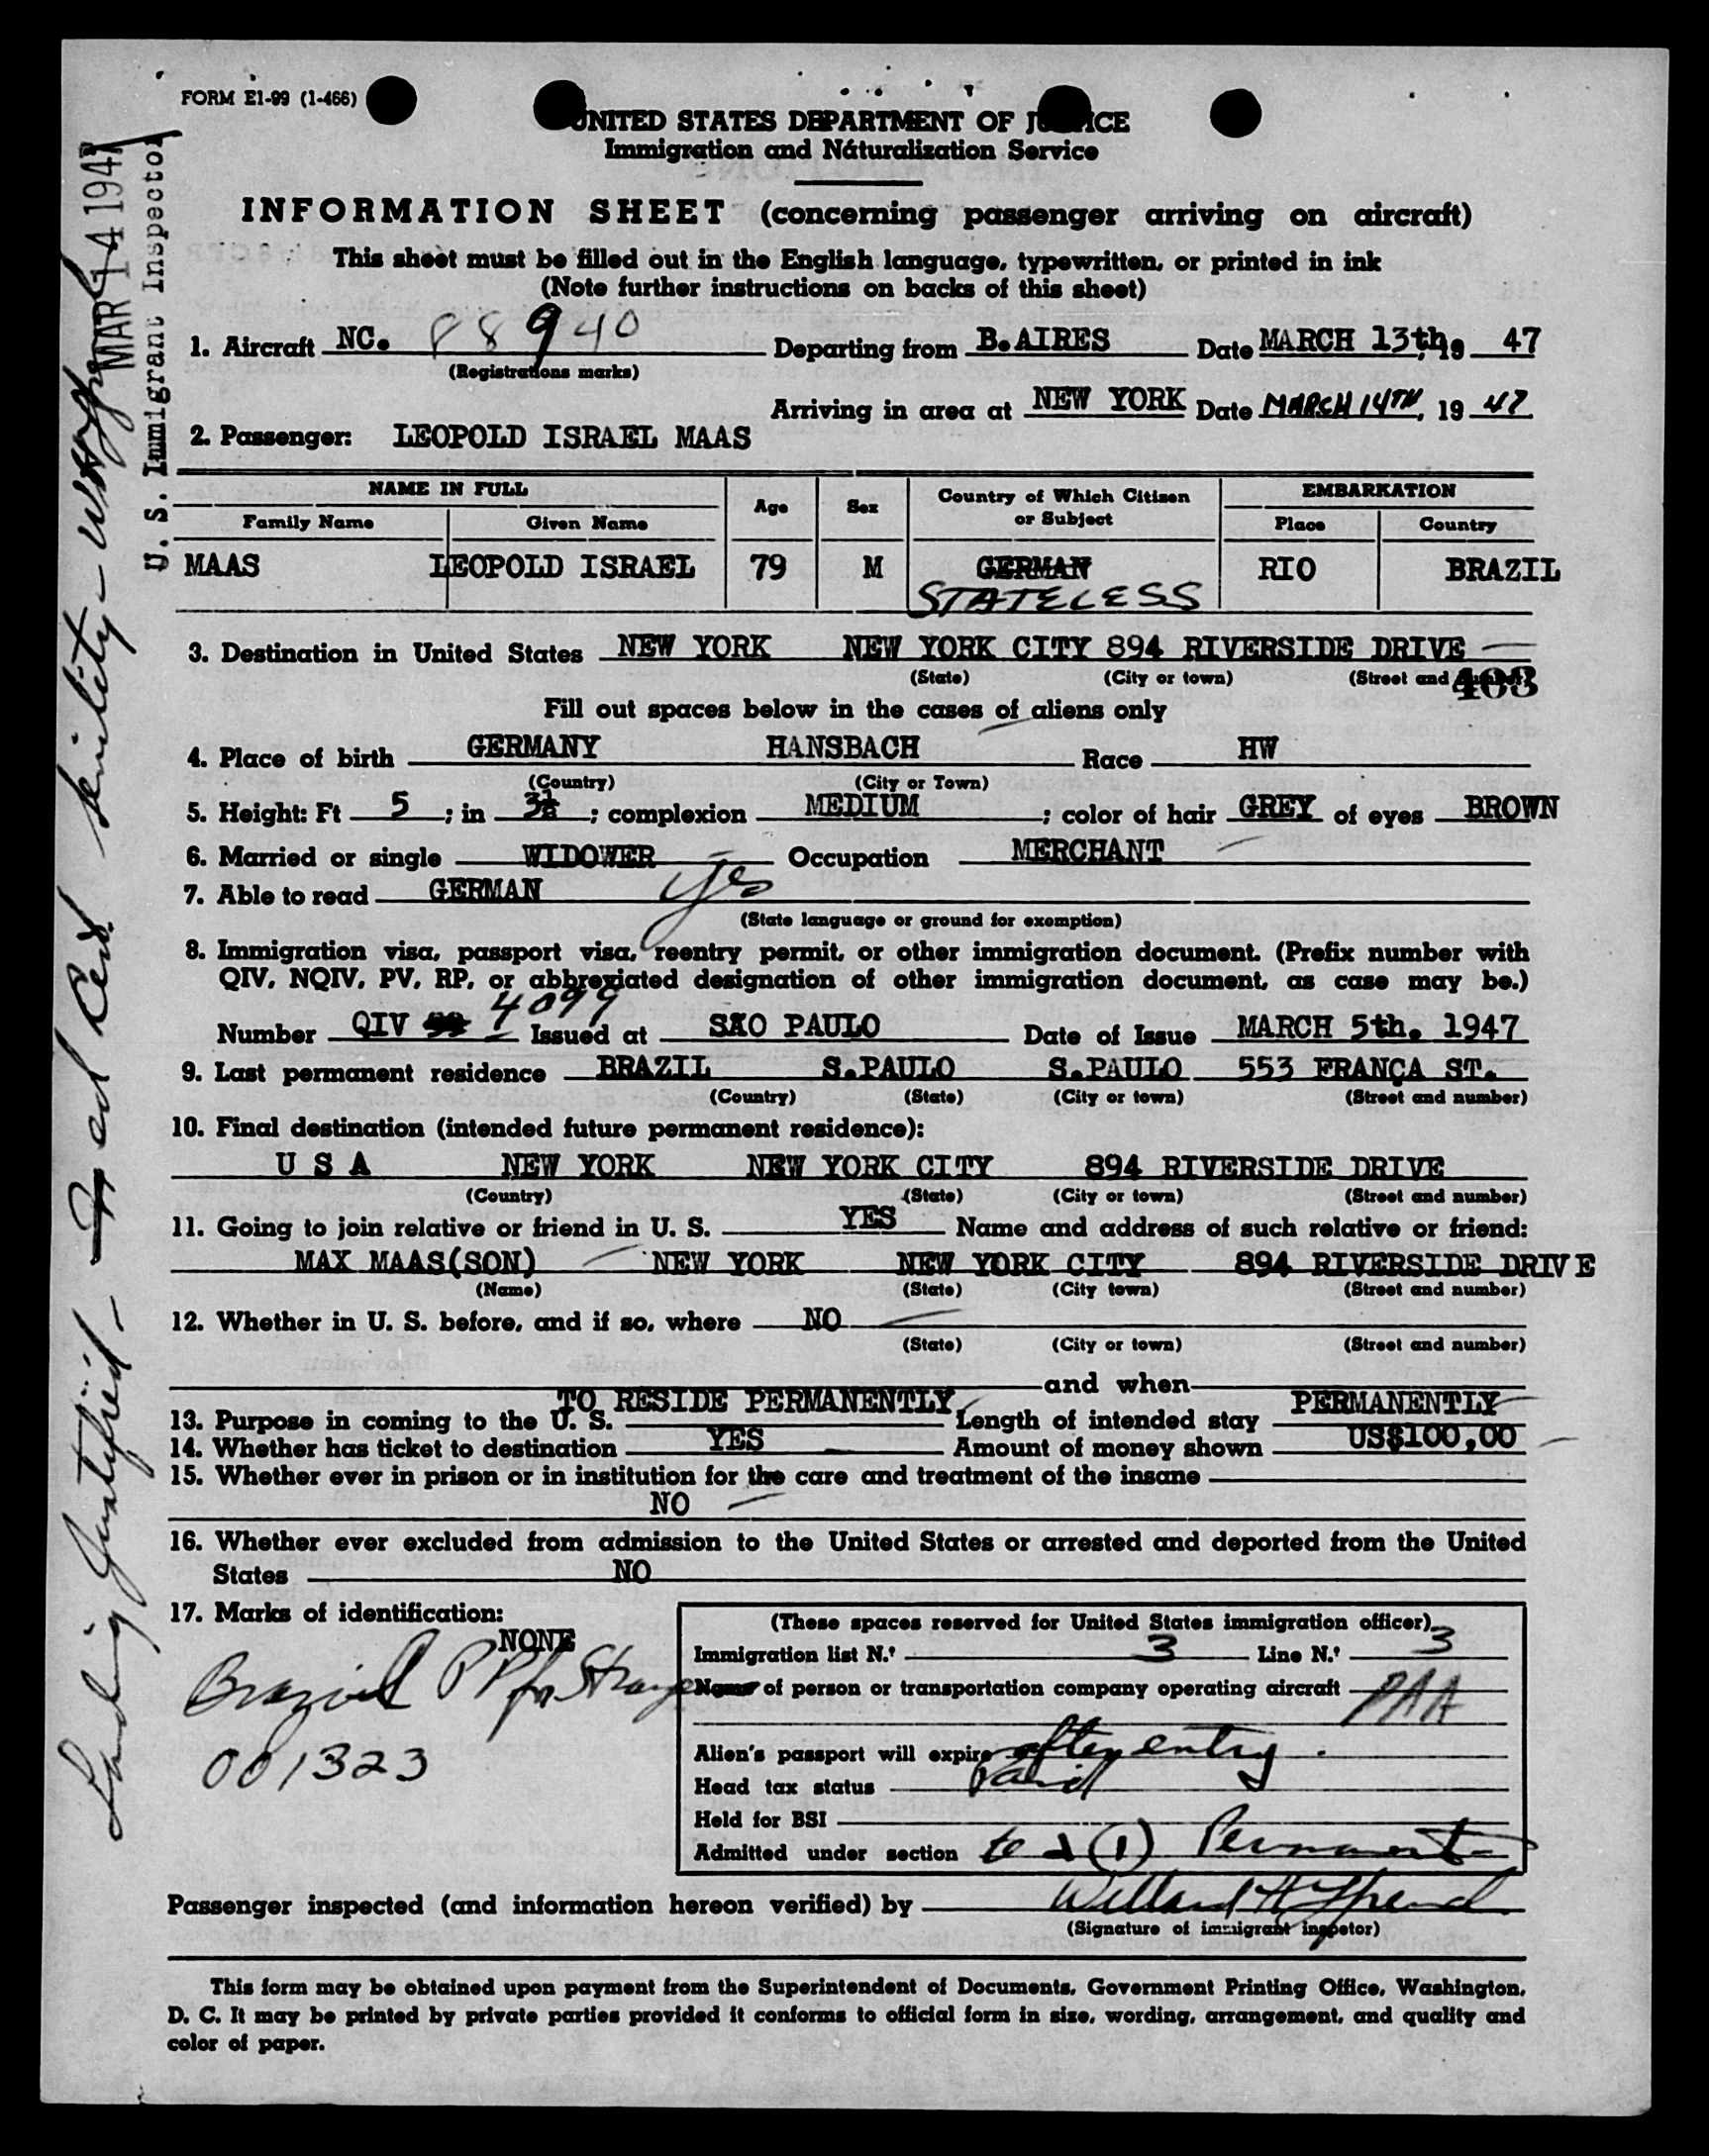 FORM E1-99 (1-466)
UNITED STATES DEPARTMENT OF JUSTICE
Immigration and Naturalization Service
INFORMATION SHEET (concerning passenger arriving on aircraft)
This sheet must be filled out in the English language, typewritten, or printed in ink
(Note further instructions on backs of this sheet)
1. Aircraft NC. 88940 Departing from B.AIRES Date MARCH 13th, 19 47
(Registrations marks)
Arriving in area at NEW YORK Date MARCH 14TH, 19 47
2. Passenger: LEOPOLD ISRAEL MAAS
NAME IN FULL Age Sex Country of Which Citizen or Subject EMBARKATION
Family Name Given Name Place Country
MAAS LEOPOLD ISRAEL 79 M GERMAN RIO BRAZIL
STATELESS
3. Destination in United States NEW YORK NEW YORK CITY 894 RIVERSIDE DRIVE
(State) (City or town) (Street and number)
403
Fill out spaces below in the cases of aliens only
4. Place of birth GERMANY HANSBACH Race HW
(Country) (City or Town)
5. Height: Ft 5 ; in 3½ ; complexion MEDIUM ; color of hair GREY of eyes BROWN
6. Married or single WIDOWER Occupation MERCHANT
7. Able to read GERMAN yes
(State language or ground for exemption)
8. Immigration visa, passport visa, reentry permit, or other immigration document. (Prefix number with
QIV, NQIV, PV, RP, or abbreviated designation of other immigration document, as case may be.)
Number QIV 4099 Issued at SAO PAULO Date of Issue MARCH 5th. 1947
9. Last permanent residence BRAZIL S.PAULO S.PAULO 553 FRANÇA ST.
(Country) (State) (City or town) (Street and number)
10. Final destination (intended future permanent residence):
U S A NEW YORK NEW YORK CITY 894 RIVERSIDE DRIVE
(Country) (State) (City or town) (Street and number)
11. Going to join relative or friend in U. S. YES Name and address of such relative or friend:
MAX MAAS(SON) NEW YORK NEW YORK CITY 894 RIVERSIDE DRIVE
(Name) (State) (City town) (Street and number)
12. Whether in U. S. before, and if so, where NO
(State) (City or town) (Street and number)
and when
13. Purpose in coming to the U. S. TO RESIDE PERMANENTLY Length of intended stay PERMANENTLY
14. Whether has ticket to destination YES Amount of money shown US$100,00
15. Whether ever in prison or in institution for the care and treatment of the insane
NO
16. Whether ever excluded from admission to the United States or arrested and deported from the United
States NO
17. Marks of identification:
NONE
Brazil PP for Strange
001323
(These spaces reserved for United States immigration officer)
Immigration list N.º 3 Line N.º 3
Name of person or transportation company operating aircraft PAA
Alien's passport will expire after entry.
Head tax status Paid
Held for BSI
Admitted under section (1) Permanent
Passenger inspected (and information hereon verified) by Willard H
(Signature of immigrant inspetor)
This form may be obtained upon payment from the Superintendent of Documents, Government Printing Office, Washington,
D. C. It may be printed by private parties provided it conforms to official form in size, wording, arrangement, and quality and
color of paper.
Landing Justified - Med Cert senility -
MAR 14 1947
U. S. Immigrant Inspector